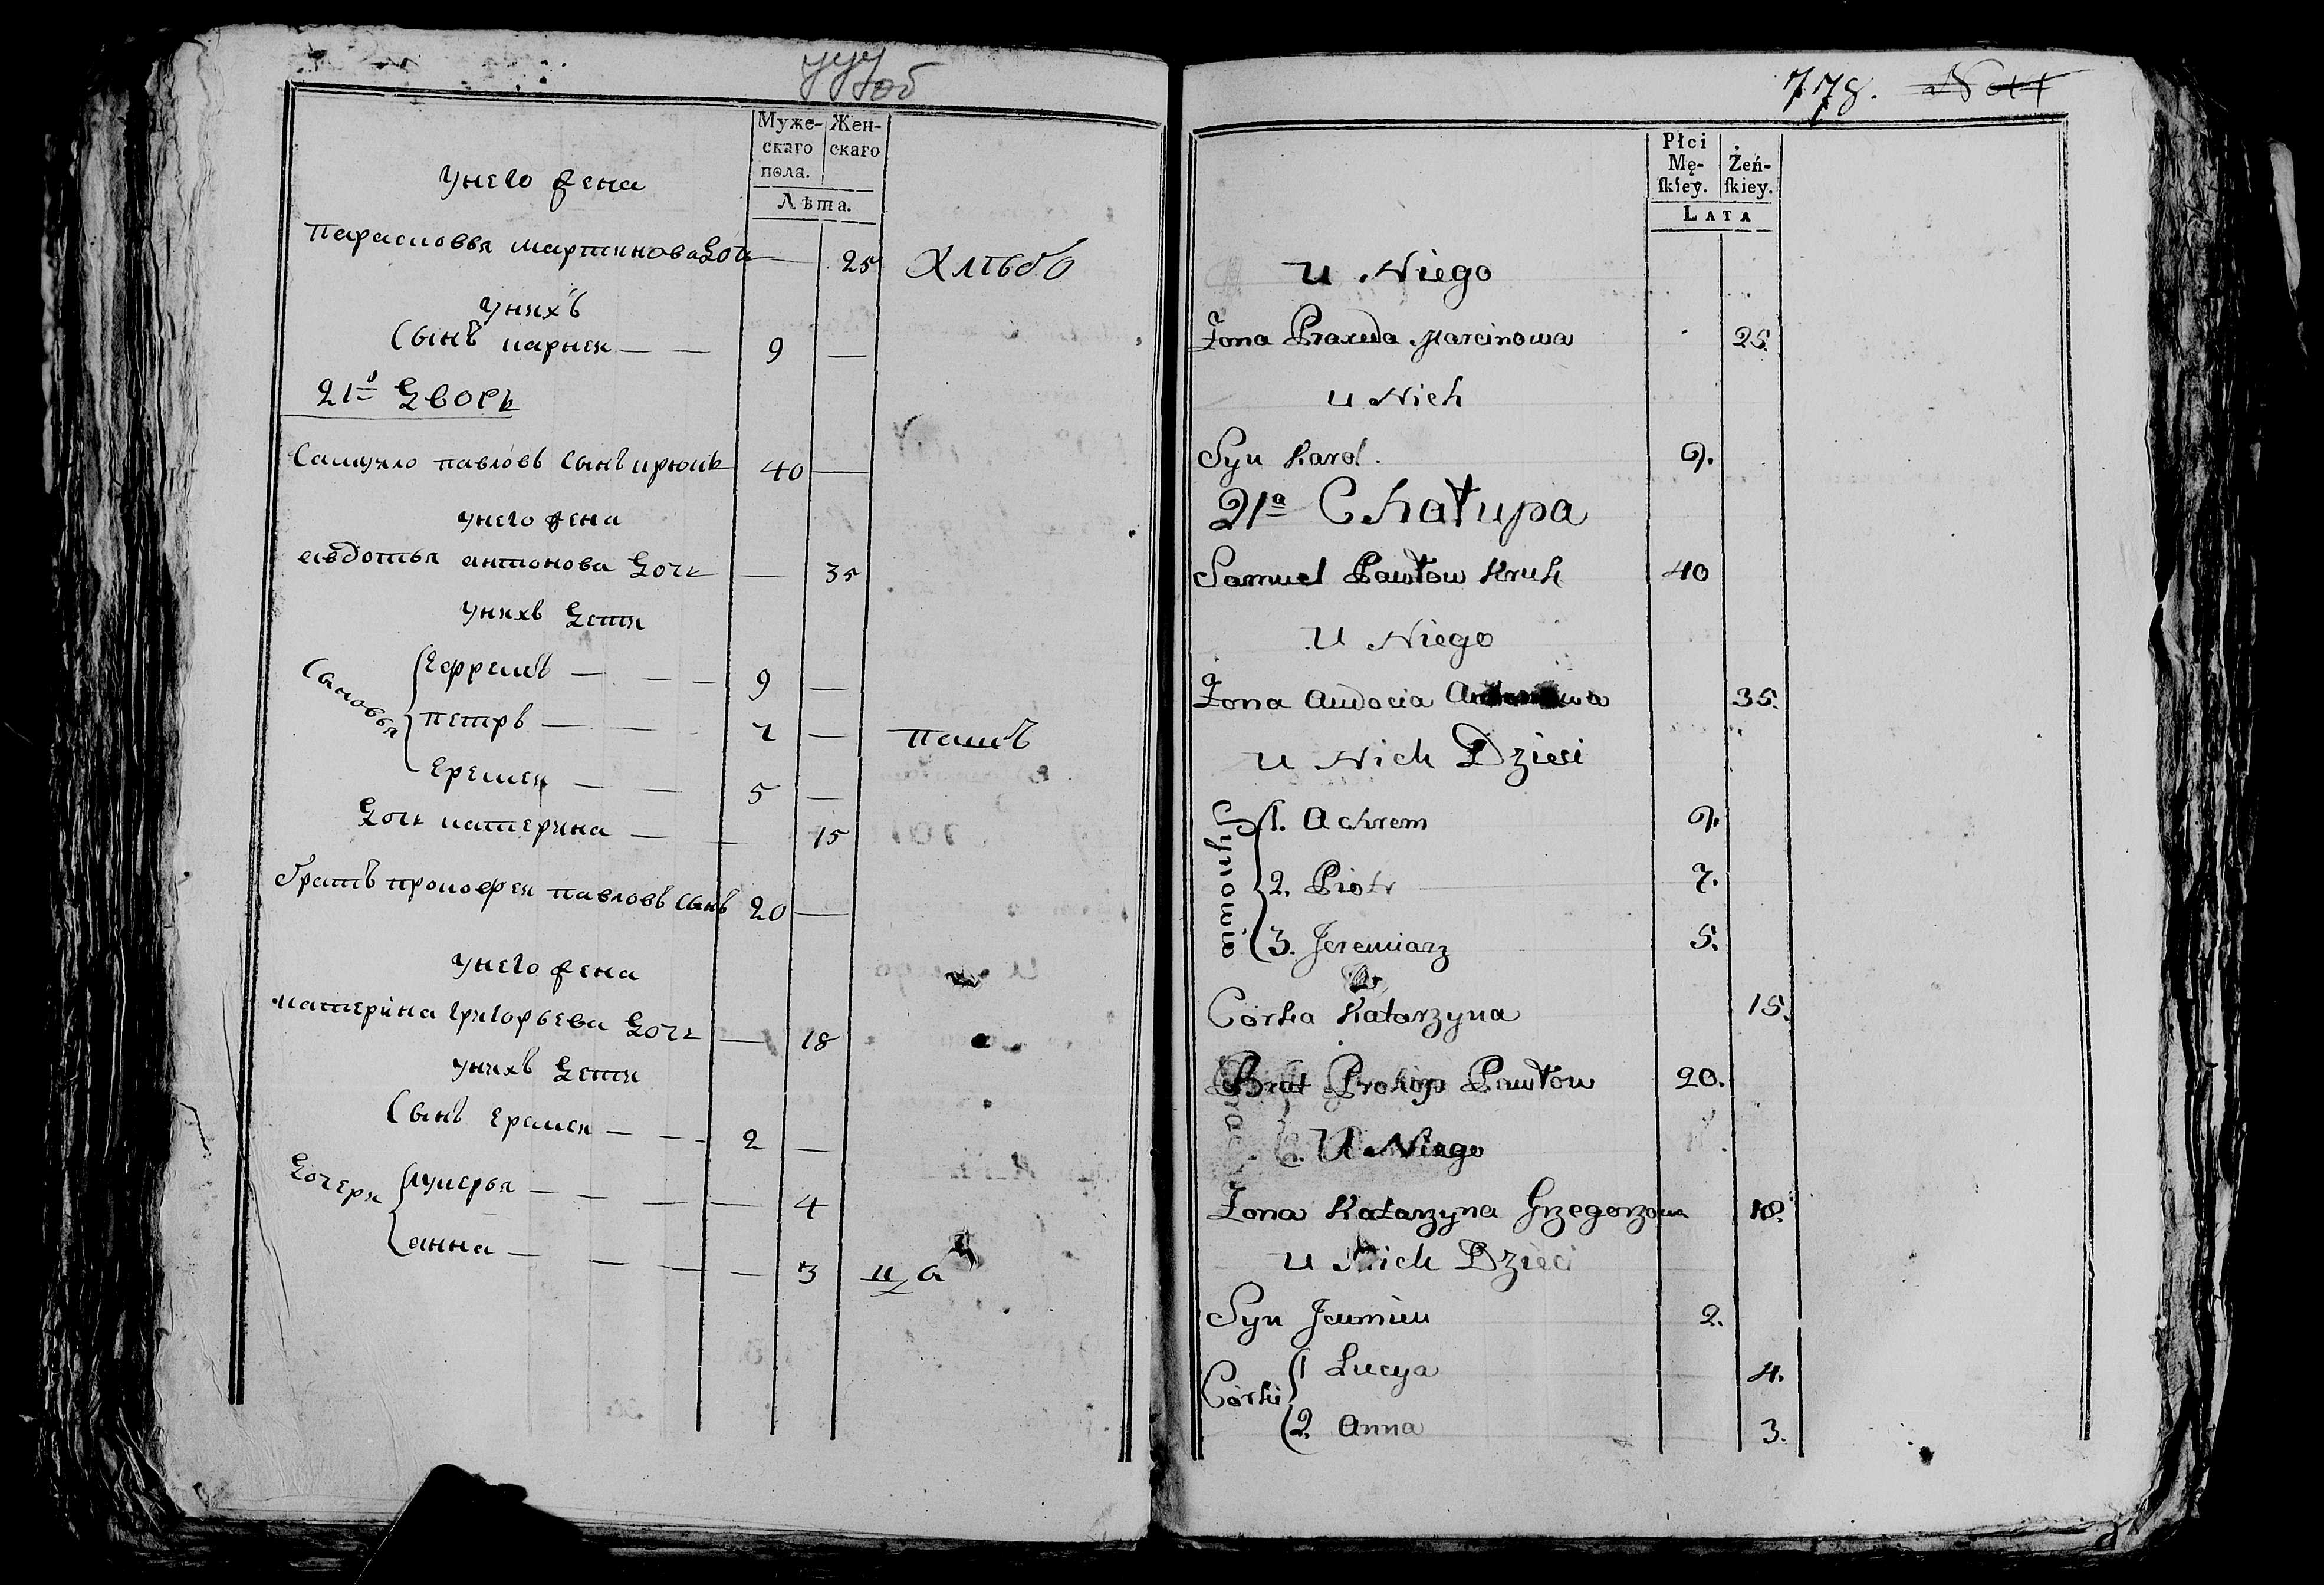 777 об
Муже-
скаго
пола.
Жен-
скаго
Лѣта.
унего жена
парасковья мартинова дочь — 25 Хлѣбо
унихъ
Сынъ карней — — 9 —
21й дворъ
Самуйло павловъ Сынъ крюкъ 40 —
унего жена
авдотья антонова дочь — 35
унихъ дети
Сыновья
Еффремъ — — — 9 —
петръ — — 7 — пашъ
Еремей — — 5 —
дочь катерина — — 15
братъ прокофей павловъ Сынъ 20 —
унего жена
катерина григорьева дочь — 18
унихъ дети
Сынъ Еремей — — — 2 —
дочери
лукерья — — — — 4
анна — — — — 3 ца
778.
Płci
Mę-
ſkiey.
Żeń-
ſkiey.
LATA
u Niego
Żona Praxeda Marcinowa 25.
u Nich
Syn Karol. 9.
21a Chałupa
Samuel Pawłow Kruk 40
u Niego
Żona Audocia 35.
u Nich Dzieci
Synowie
1. Achrem 9.
2. Piotr 7.
3. Jeremiarz 5.
Córka Katarzyna 15.
Brat Prokop Pawłow 20.
U Niego
Żona Katarzyna Grzegorzowa 18.
u Nich Dzieci
Syn 2.
Córki
1 Lucya 4.
2. Anna 3.